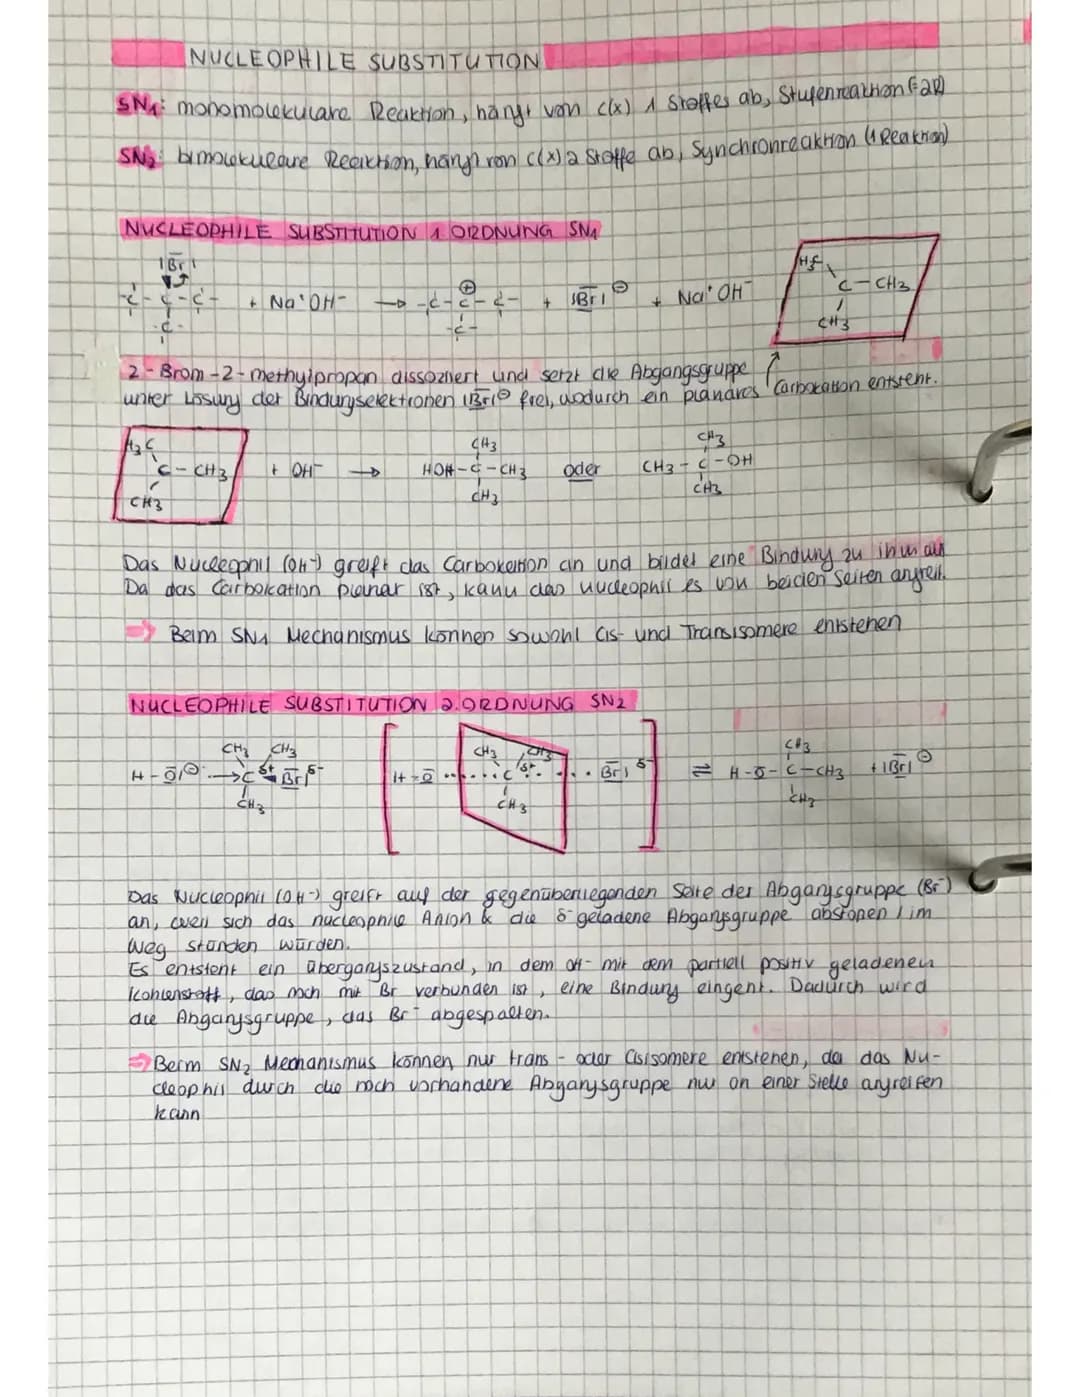 NUCLEOPHILE SUBSTITUTION
SN1: monomolekulare Reaktion, hängt von c(x) 1 Stoffes ab, Stufenreaktion (=2R)
SN2: bimolekulare Reaktion, hängt von c(x) 2 Stoffe ab, Synchronreaktion (1 Reaktion)
NUCLEOPHILE SUBSTITUTION 1 ORDNUNG SN1
|Br|
-C-C-C- + Na+OH- → -C-C-C- + |Br|⊖ + Na+OH-
⊕
-C- -C-
H3C
C-CH3
CH3
2-Brom-2-methylpropan dissoziiert und setzt die Abgangsgruppe
unter Lösung der Bindungselektronen |Br|⊖ frei, wodurch ein planares Carbokation entsteht.
H3C CH3 CH3
C-CH3 + OH- → HOH-C-CH3 oder CH3-C-OH
CH3 CH3 CH3
Das Nucleophil (OH-) greift das Carbokation an und bildet eine Bindung zu ihm aus
Da das Carbokation planar ist, kann das nucleophil es von beiden Seiten angreif.
⇒ Beim SN1 Mechanismus können sowohl Cis- und Transisomere entstehen
NUCLEOPHILE SUBSTITUTION 2.ORDNUNG SN2
CH3 CH3 CH3 CH3 CH3
H-O|⊖ → C δ+ Br| δ- [H-O ...... C δ+ .... Br| δ-] ⇌ H-O-C-CH3 + |Br|⊖
CH3 CH3 CH3
Das Nucleophil (OH-) greift auf der gegenüberliegenden Seite der Abgangsgruppe (Br-)
an, weil sich das nucleophile Anion & die δ-geladene Abgangsgruppe abstoßen / im
Weg stünden würden.
Es entsteht ein Übergangszustand, in dem OH- mit dem partiell positiv geladenen
Kohlenstoff, das noch mit Br verbunden ist, eine Bindung eingeht. Dadurch wird
die Abgangsgruppe, das Br- abgespalten.
⇒ Beim SN2 Mechanismus können nur trans- oder Cisisomere entstehen, da das Nu-
cleophil durch die noch vorhandene Abgangsgruppe nur an einer Stelle angreifen
kann